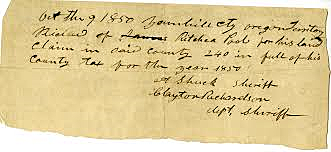 Oct the 9 1850 Yamhill Cty oregon Territory
Recieved of Ritchea Poal for his land
Claim in Said county 240 in full of his
County tax for the year 1850
A Shuck Shriff
Clayton Richardson
dept, Shiriff